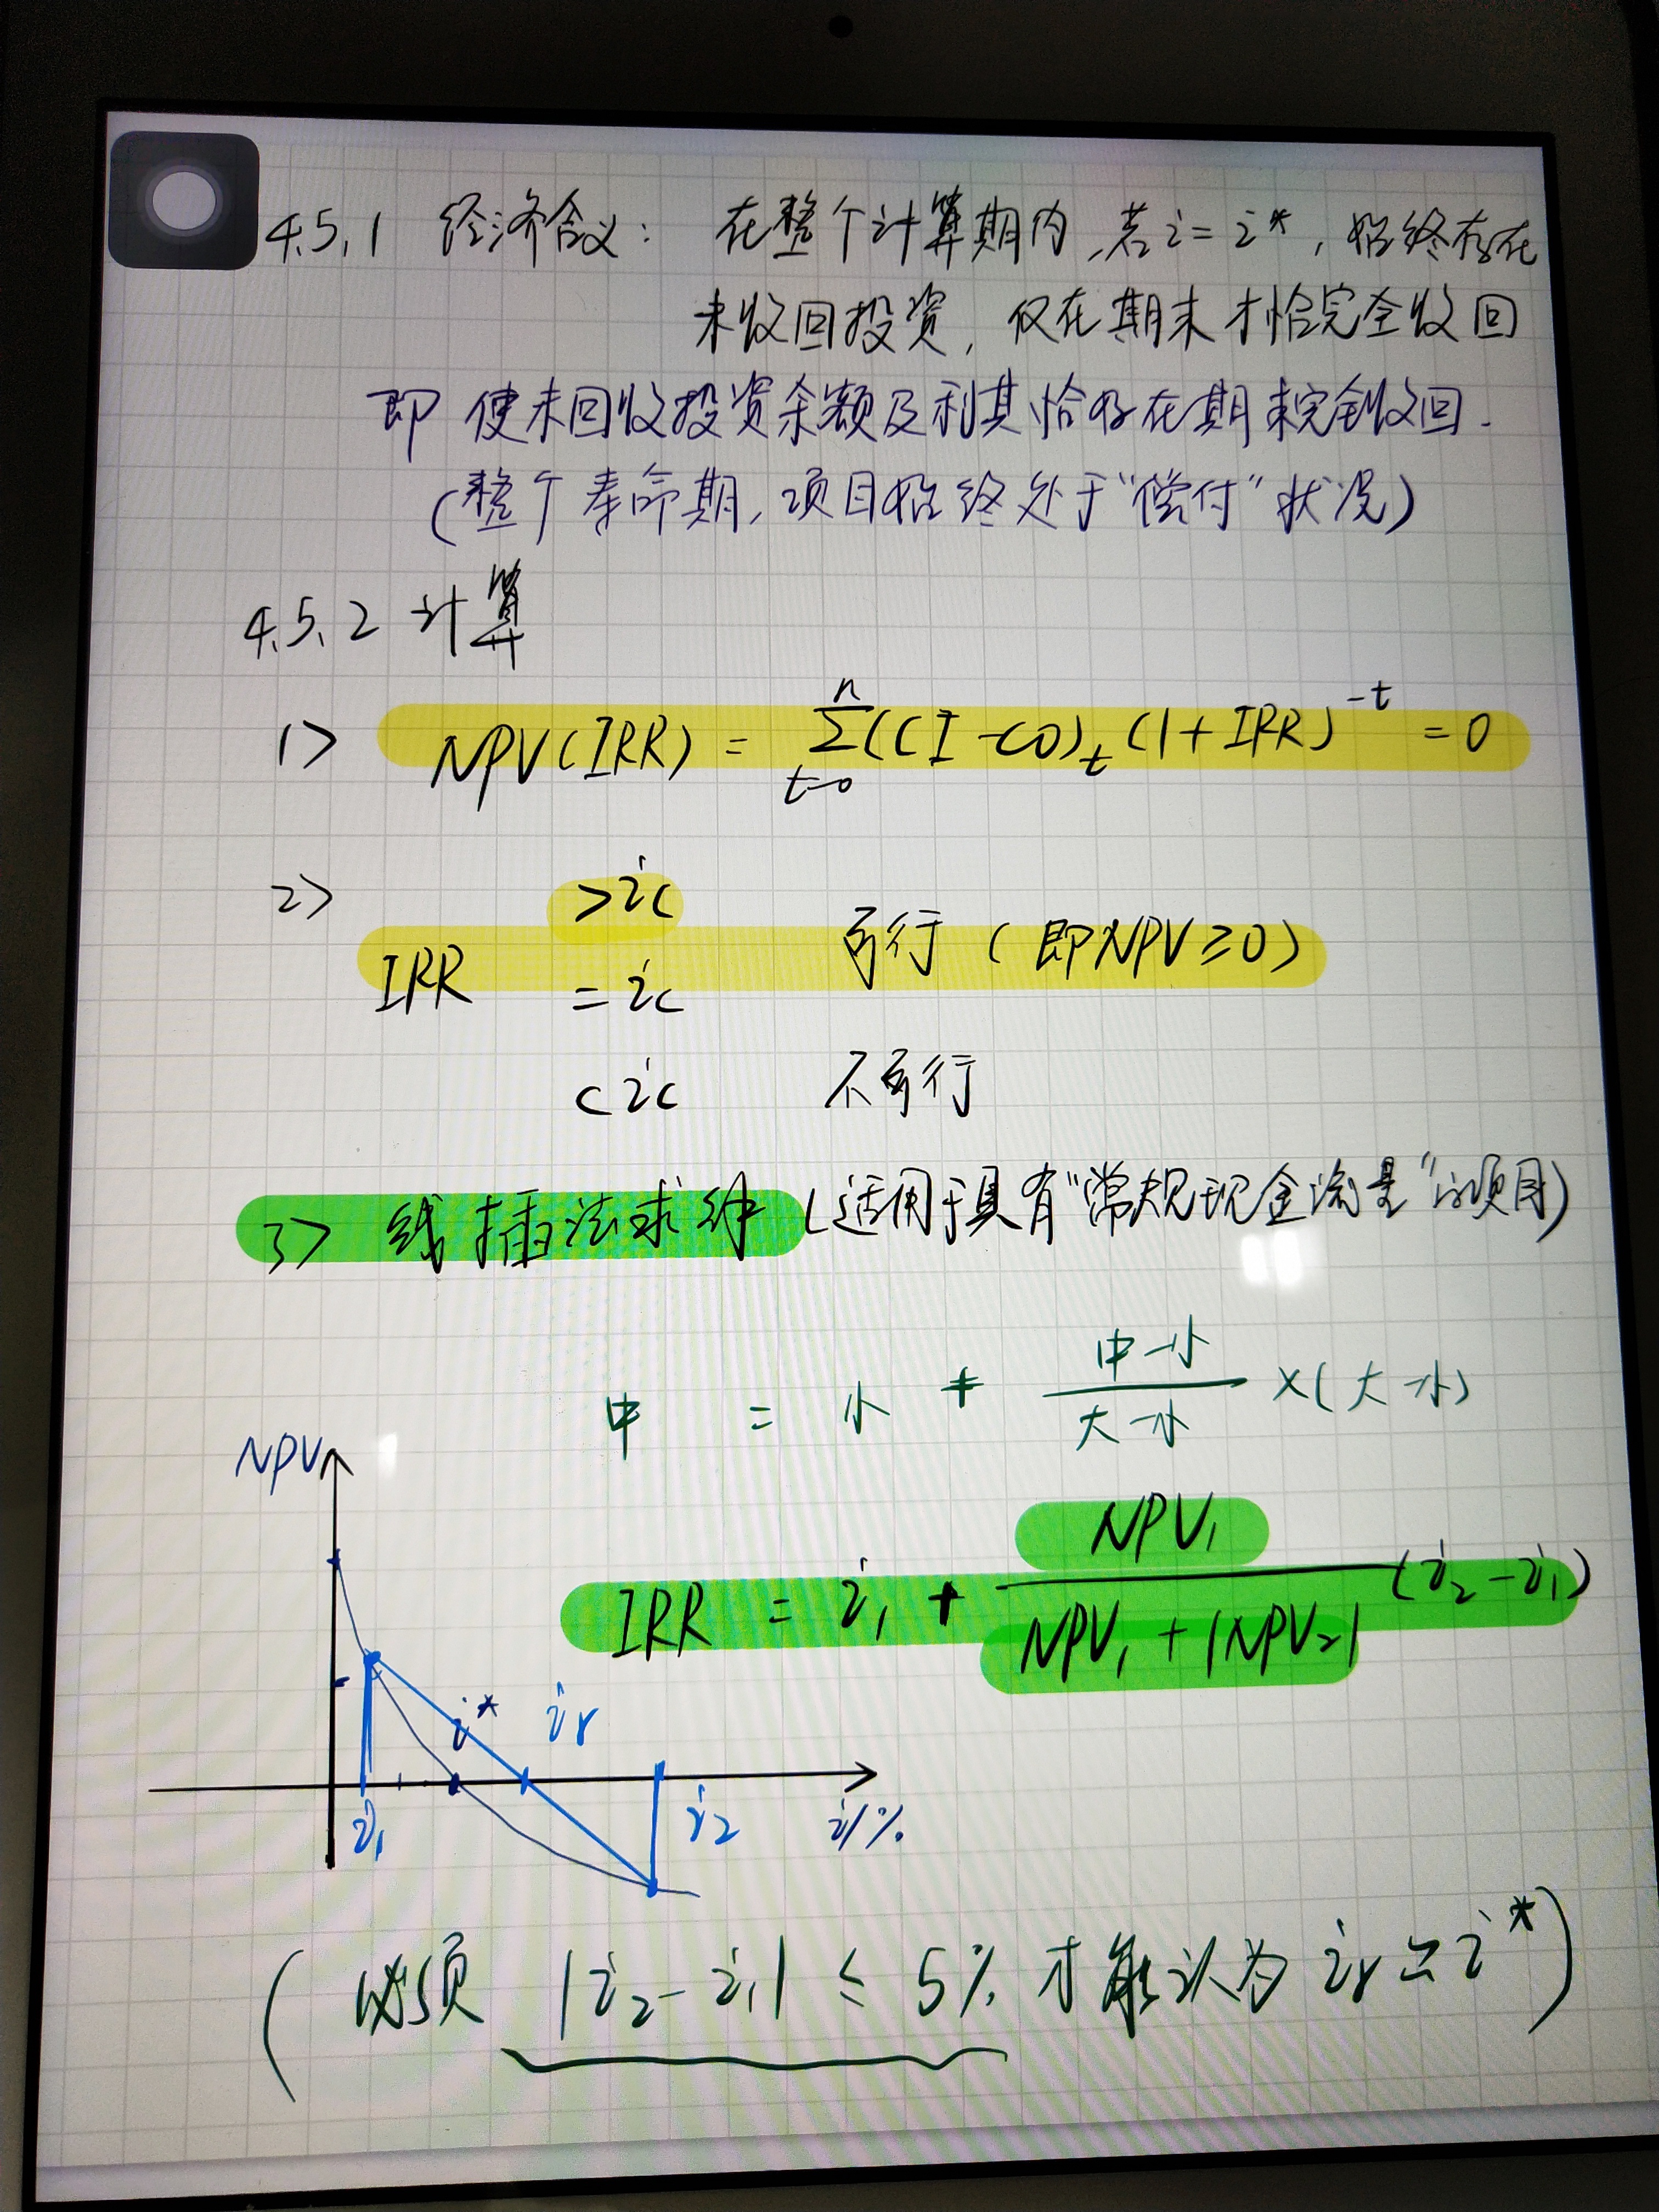 4.5.1 经济含义: 在整个计算期内,若i=i*, 始终存在
未收回投资, 仅在期末才恰完全收回
即 使未回收投资余额及利息恰好在期末完全收回.
(整个寿命期,项目始终处于"偿付"状况)
4.5.2 计算
1> NPV(IRR) = Σ(CI-CO)t (1+IRR)^-t = 0
n
t=0
2>
>ic
IRR = ic 可行 (即NPV≥0)
<ic 不可行
3> 线插法求解 (适用于具有"常规现金流量"的项目)
中 = 小 + (中-小)/(大-小) ×(大-小)
NPV
IRR = i1 + NPV1/(NPV1+|NPV2|) (i2-i1)
i* ir
i1 i2 i/%
(必须 |i2-i1| ≤ 5% 才能认为 ir≃i*)